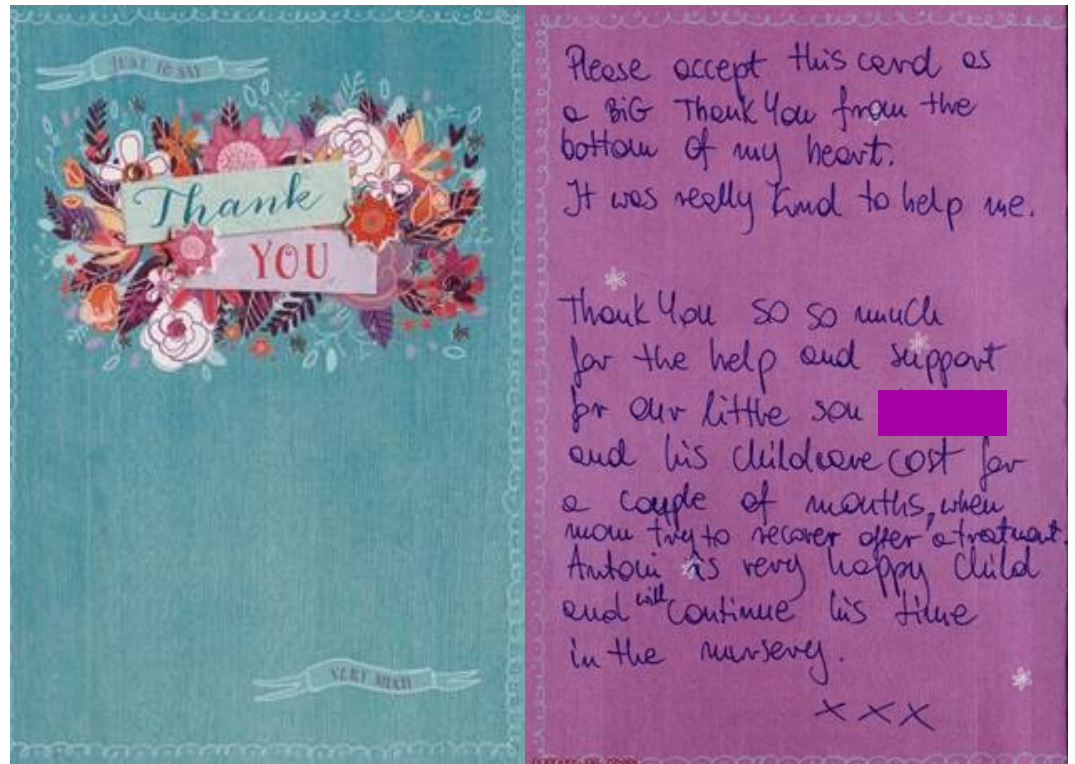 JUST TO SAY
Thank
YOU
VERY MUCH
Please accept this card as
a BiG Thank You from the
bottom of my heart.
It was really kind to help me.
Thank You so so much
for the help and support
for our little son
and his childcare cost for
a couple of months, when
mom try to recover after a treatment.
Antoni is very happy child
and will continue his time
in the nursery.
xxx